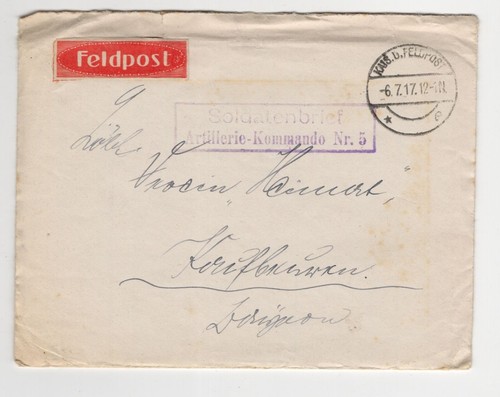 Feldpost
KAIS. D. FELDPOST
-6.7.17.12-1N.
* e
Soldatenbrief
Artillerie-Kommando Nr. 5
Löbl.
Verein "Heimat"
Kaufbeuren.
Bayern.